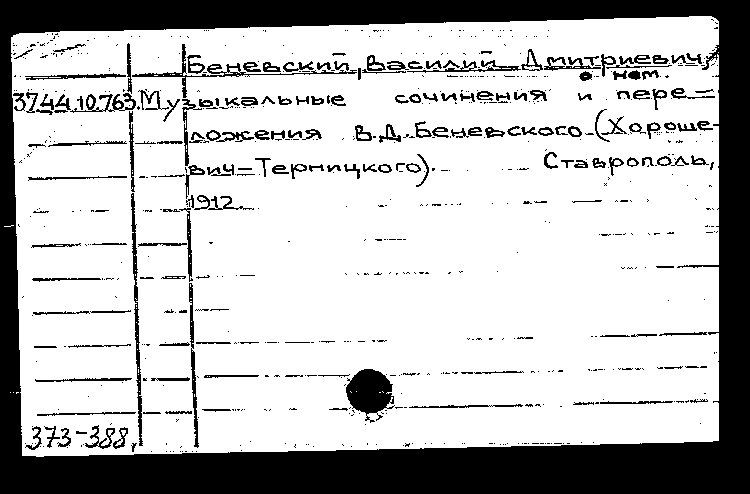 Беневский, Василий Дмитриевич,
о нем.
37.44.10.763. Музыкальные сочинения и пере-
ложения В.Д. Беневского (Хороше-
вич-Терницкого). Ставрополь,
1912.
373-388,